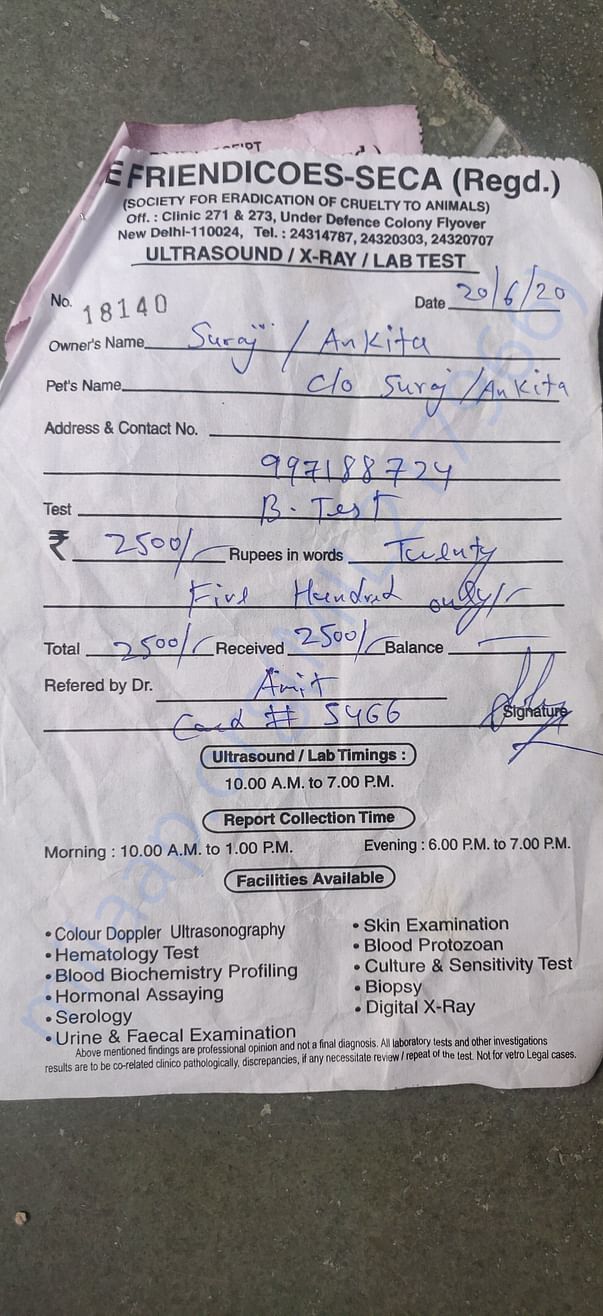 EFRIENDICOES-SECA (Regd.)
(SOCIETY FOR ERADICATION OF CRUELTY TO ANIMALS)
Off. : Clinic 271 & 273, Under Defence Colony Flyover
New Delhi-110024, Tel. : 24314787, 24320303, 24320707
ULTRASOUND / X-RAY / LAB TEST
No. 18140 Date 20/6/20
Owner's Name Suraj / Ankita
Pet's Name c/o Suraj / Ankita
Address & Contact No.
997188724
Test B. Test
₹ 2500/- Rupees in words Twenty
Five Hundred only/-
Total 2500/- Received 2500/- Balance
Refered by Dr. Amit
Card # 5466 Signature
Ultrasound / Lab Timings :
10.00 A.M. to 7.00 P.M.
Report Collection Time
Morning : 10.00 A.M. to 1.00 P.M. Evening : 6.00 P.M. to 7.00 P.M.
Facilities Available
• Colour Doppler Ultrasonography
• Hematology Test
• Blood Biochemistry Profiling
• Hormonal Assaying
• Serology
• Urine & Faecal Examination
• Skin Examination
• Blood Protozoan
• Culture & Sensitivity Test
• Biopsy
• Digital X-Ray
Above mentioned findings are professional opinion and not a final diagnosis. All laboratory tests and other investigations
results are to be co-related clinico pathologically, discrepancies, if any necessitate review / repeat of the test. Not for vetro Legal cases.